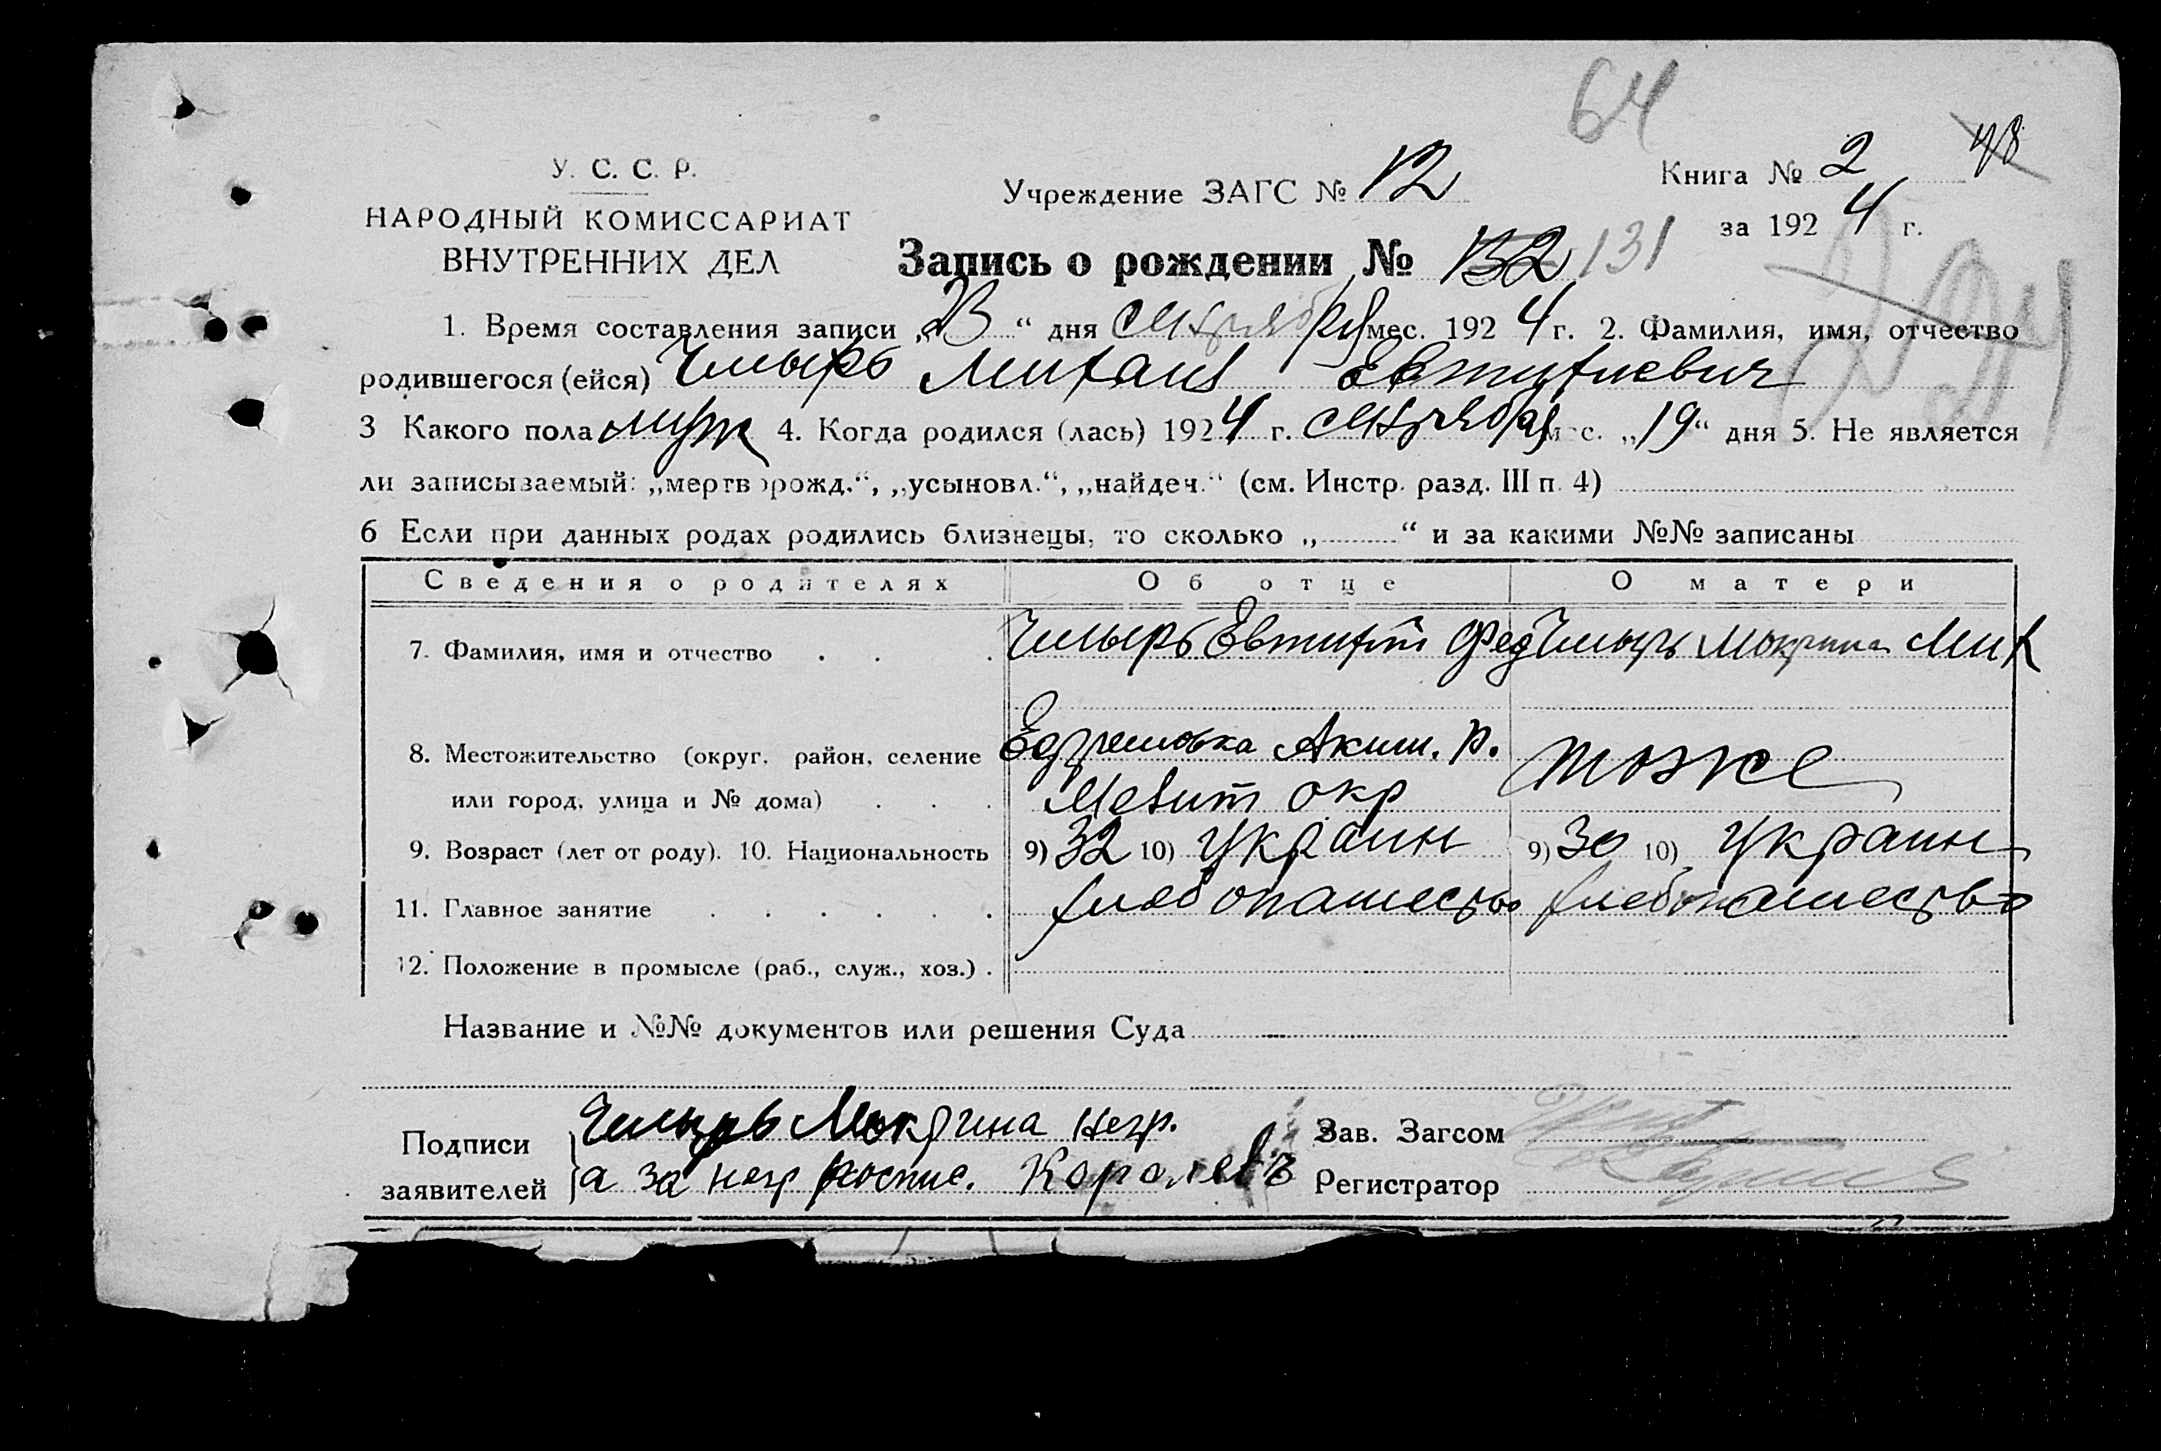 64
У. С. С. Р.
НАРОДНЫЙ КОМИССАРИАТ
ВНУТРЕННИХ ДЕЛ
Учреждение ЗАГС № 12
Книга № 2 48
за 1924 г.
Запись о рождении № 132 131
1. Время составления записи „23“ дня сентября мес. 1924 г. 2. Фамилия, имя, отчество
родившегося (ейся) Чмырь Михаил Евтихиевич
3 Какого пола муж 4. Когда родился (лась) 1924 г. сентября мес. „19“ дня 5. Не является
ли записываемый: „мертворожд.“, „усыновл.“, „найден.“ (см. Инстр. разд. III п. 4)
6 Если при данных родах родились близнецы, то сколько „ “ и за какими №№ записаны
Сведения о родителях Об отце О матери
7. Фамилия, имя и отчество . . . Чмырь Евтихий Фед Чмырь Мокрина Мих
8. Местожительство (округ, район, селение Аким. р. тоже
или город, улица и № дома) . . . Мелит окр
9. Возраст (лет от роду). 10. Национальность 9) 32 10) Украин 9) 30 10) Украин
11. Главное занятие . . . . . . хлебопашество хлебопашество
12. Положение в промысле (раб., служ., хоз.) .
Название и №№ документов или решения Суда
Подписи Чмырь Мокрина негр. Зав. Загсом
заявителей а за негр роспис. Королевъ Регистратор